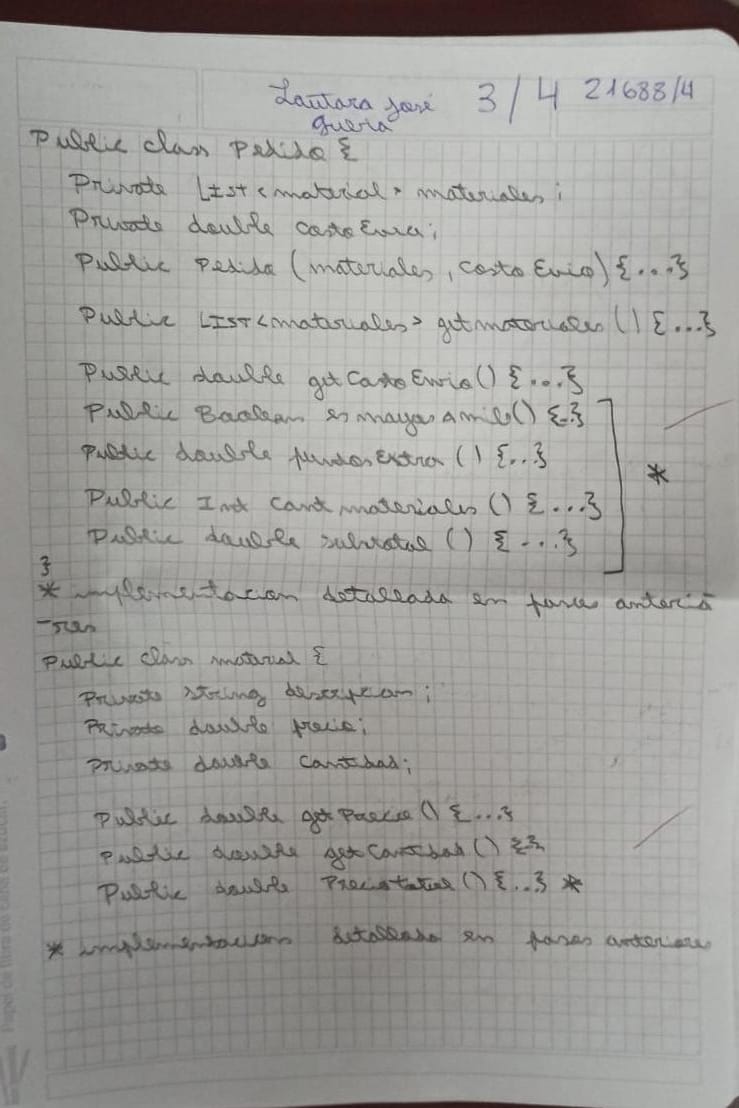 Lautaro José 3/4 21688/4
Guerra
Public class Pedido {
Private List<material> materiales;
Private double costo Envio;
Public Pedido (materiales, costo Envio) {...}
Public List<materiales> getmateriales () {...}
Public double get Costo Envio() {...}
Public Boolean es mayor A mil() {..}
Public double fundos Extra () {..}
Public Int Cant materiales () {...}
Public double subtotal () {...}
*
}
* implementacion detallada en pasos anterio
-res
Public class material {
Private string descripcion;
Private double precio;
Private double cantidad;
Public double get Precio () {...}
Public double get Cantidad () {}
Public double Preciototal () {..} *
* implementacion detallada en pasos anteriores